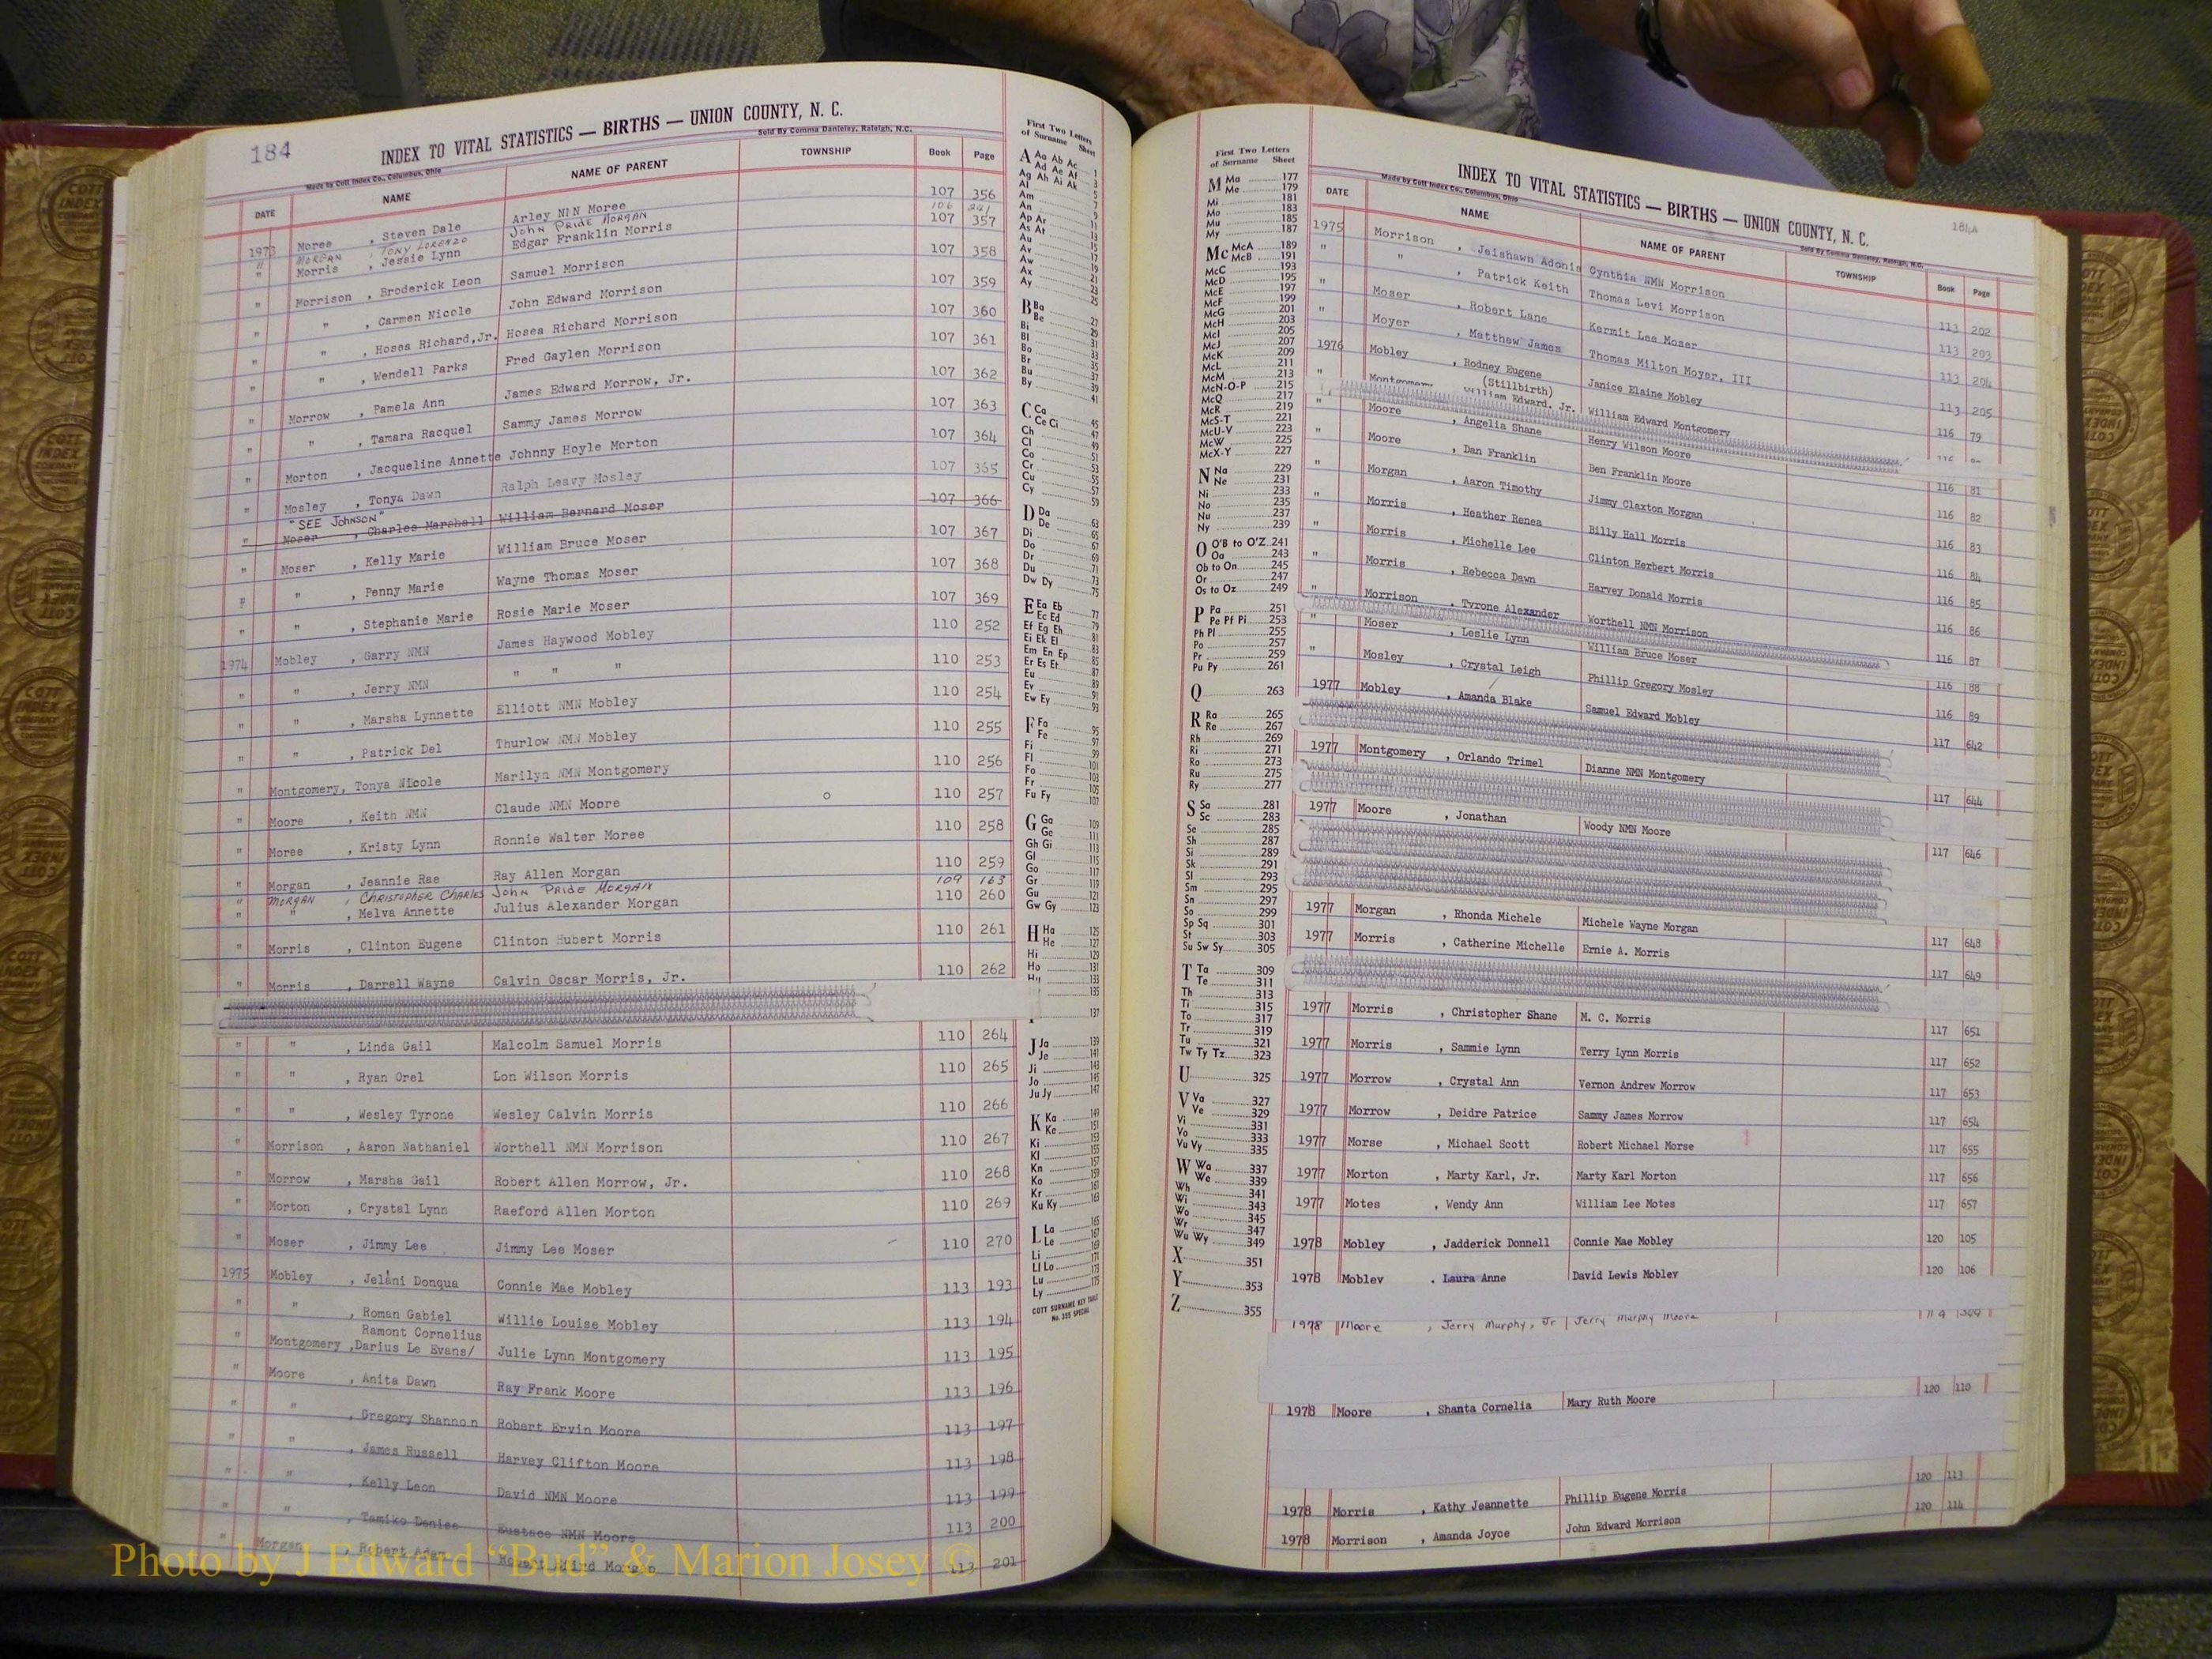 184
INDEX TO VITAL STATISTICS — BIRTHS — UNION COUNTY, N. C.
Made by Cott Index Co., Columbus, Ohio
Sold By Comma Danieley, Raleigh, N.C.
DATE NAME NAME OF PARENT TOWNSHIP Book Page
1973 Moree , Steven Dale Arley NMN Moree 107 356
" MORGAN , TONY LORENZO JOHN PRIDE MORGAN 106 241
" Morris , Jessie Lynn Edgar Franklin Morris 107 357
" Morrison , Broderick Leon Samuel Morrison 107 358
" " , Carmen Nicole John Edward Morrison 107 359
" " , Hosea Richard,Jr. Hosea Richard Morrison 107 360
" " , Wendell Parks Fred Gaylen Morrison 107 361
" Morrow , Pamela Ann James Edward Morrow, Jr. 107 362
" " , Tamara Racquel Sammy James Morrow 107 363
" Morton , Jacqueline Annette Johnny Hoyle Morton 107 364
" Mosley , Tonya Dawn Ralph Leavy Mosley 107 365
"SEE JOHNSON"
" Moser , Charles Marshall William Bernard Moser 107 366
" Moser , Kelly Marie William Bruce Moser 107 367
" " , Penny Marie Wayne Thomas Moser 107 368
" " , Stephanie Marie Rosie Marie Moser 107 369
1974 Mobley , Garry NMN James Haywood Mobley 110 252
" " , Jerry NMN " " " 110 253
" " , Marsha Lynnette Elliott NMN Mobley 110 254
" " , Patrick Del Thurlow NMN Mobley 110 255
" Montgomery, Tonya Nicole Marilyn NMN Montgomery 110 256
" Moore , Keith NMN Claude NMN Moore 110 257
" Moree , Kristy Lynn Ronnie Walter Moree 110 258
" Morgan , Jeannie Rae Ray Allen Morgan 110 259
" MORGAN , CHRISTOPHER CHARLES JOHN PRIDE MORGAN 109 163
" " , Melva Annette Julius Alexander Morgan 110 260
" Morris , Clinton Eugene Clinton Hubert Morris 110 261
" Morris , Darrell Wayne Calvin Oscar Morris, Jr. 110 262
" " , Linda Gail Malcolm Samuel Morris 110 264
" " , Ryan Orel Lon Wilson Morris 110 265
" " , Wesley Tyrone Wesley Calvin Morris 110 266
" Morrison , Aaron Nathaniel Worthell NMN Morrison 110 267
" Morrow , Marsha Gail Robert Allen Morrow, Jr. 110 268
" Morton , Crystal Lynn Raeford Allen Morton 110 269
" Moser , Jimmy Lee Jimmy Lee Moser 110 270
1975 Mobley , Jelani Donqua Connie Mae Mobley 113 193
" " , Roman Gabiel Willie Louise Mobley 113 194
Ramont Cornelius
" Montgomery ,Darius Le Evans/ Julie Lynn Montgomery 113 195
" Moore , Anita Dawn Ray Frank Moore 113 196
" " , Gregory Shannon Robert Ervin Moore 113 197
" " , James Russell Harvey Clifton Moore 113 198
" " , Kelly Leon David NMN Moore 113 199
" " , Tamiko Denise Eustace NMN Moore 113 200
" Morgan , Robert Morgan 113 201
First Two Letters
of Surname Sheet
A Aa Ab Ac 1
Ad Ae Af 3
Ag Ah Ai Ak 5
Al
Am
An
Ap Ar 11
As At 13
Au 15
Av 17
Aw 19
Ax 21
Ay
B Ba 27
Be 29
Bi 31
Bl 33
Bo 35
Br 37
Bu 39
By 41
C Ca 45
Ce Ci 47
Ch 49
Cl 51
Co 53
Cr 55
Cu 57
Cy 59
D Da 63
De 65
Di 67
Do 69
Dr 71
Du 73
Dw Dy 75
E Ea Eb 77
Ec Ed 79
Ef Eg Eh 81
Ei Ek El 83
Em En Ep 85
Er Es Et 87
Eu 89
Ev 91
Ew Ey 93
F Fa 95
Fe 97
Fi 99
Fl 101
Fo 103
Fr 105
Fu Fy 107
G Ga 109
Ge 111
Gh Gi 113
Gl 115
Go 117
Gr 119
Gu 121
Gw Gy 123
H Ha 125
He 127
Hi 129
Ho 131
Hu 133
135
137
J Ja 139
Je 141
Ji 143
Jo 145
Ju Jy 147
K Ka 149
Ke 151
Ki 153
Kl 155
Kn 157
Ko 159
Kr 161
Ku Ky 163
L La 165
Le 167
Li 169
Ll Lo 171
Lu 173
Ly 175
COTT SURNAME KEY TABLE
No. 355 SPECIAL
First Two Letters
of Surname Sheet
M Ma 177
Me 179
Mi 181
Mo 183
Mu 185
My 187
Mc McA 189
McB 191
McC 193
McD 195
McE 197
McF 199
McG 201
McH 203
McI 205
McJ 207
McK 209
McL 211
McM 213
McN-O-P 215
McQ 217
McR 219
McS-T 221
McU-V 223
McW 225
McX-Y 227
N Na 229
Ne 231
Ni 233
No 235
Nu 237
Ny 239
O O'B to O'Z 241
Oa 243
Ob to On 245
Or 247
Os to Oz 249
P Pa 251
Pe Pf Pi 253
Ph Pl 255
Po 257
Pr 259
Pu Py 261
Q 263
R Ra 265
Re 267
Rh 269
Ri 271
Ro 273
Ru 275
Ry 277
S Sa 281
Sc 283
Se 285
Sh 287
Si 289
Sk 291
Sl 293
Sm 295
Sn 297
So 299
Sp Sq 301
St 303
Su Sw Sy 305
T Ta 309
Te 311
Th 313
Ti 315
To 317
Tr 319
Tu 321
Tw Ty Tz 323
U 325
V Va 327
Ve 329
Vi 331
Vo 333
Vu Vy 335
W Wa 337
We 339
Wh 341
Wi 343
Wo 345
Wr 347
Wu Wy 349
X 351
Y 353
Z 355
184A
INDEX TO VITAL STATISTICS — BIRTHS — UNION COUNTY, N. C.
Made by Cott Index Co., Columbus, Ohio
Sold By Comma Danieley, Raleigh, N.C.
DATE NAME NAME OF PARENT TOWNSHIP Book Page
1975 Morrison , Jeishawn Adonis Cynthia NMN Morrison 113 202
" " , Patrick Keith Thomas Levi Morrison 113 203
" Moser , Robert Lane Kermit Lee Moser 113 204
" Moyer , Matthew James Thomas Milton Moyer, III 113 205
1976 Mobley , Rodney Eugene Janice Elaine Mobley 116 79
(Stillbirth)
" Montgomery William Edward, Jr. William Edward Montgomery 116
" Moore , Angelia Shane Henry Wilson Moore 116 81
" Moore , Dan Franklin Ben Franklin Moore 116 82
" Morgan , Aaron Timothy Jimmy Claxton Morgan 116 83
" Morris , Heather Renea Billy Hall Morris 116 84
" Morris , Michelle Lee Clinton Herbert Morris 116 85
" Morris , Rebecca Dawn Harvey Donald Morris 116 86
" Morrison , Tyrone Alexander Worthell NMN Morrison 116 87
" Moser , Leslie Lynn William Bruce Moser 116 88
" Mosley , Crystal Leigh Phillip Gregory Mosley 116 89
1977 Mobley , Amanda Blake Samuel Edward Mobley 117 642
1977 Montgomery , Orlando Trimel Dianne NMN Montgomery 117 644
1977 Moore , Jonathan Woody NMN Moore 117 646
1977 Morgan , Rhonda Michele Michele Wayne Morgan 117 648
1977 Morris , Catherine Michelle Ernie A. Morris 117 649
1977 Morris , Christopher Shane M. C. Morris 117 651
1977 Morris , Sammie Lynn Terry Lynn Morris 117 652
1977 Morrow , Crystal Ann Vernon Andrew Morrow 117 653
1977 Morrow , Deidre Patrice Sammy James Morrow 117 654
1977 Morse , Michael Scott Robert Michael Morse 117 655
1977 Morton , Marty Karl, Jr. Marty Karl Morton 117 656
1977 Motes , Wendy Ann William Lee Motes 117 657
1978 Mobley , Jadderick Donnell Connie Mae Mobley 120 105
1978 Mobley , Laura Anne David Lewis Mobley 120 106
1978 Moore , Jerry Murphy, Jr Jerry Murphy Moore
1978 Moore , Shanta Cornelia Mary Ruth Moore 120 110
1978 Morris , Kathy Jeannette Phillip Eugene Morris 120 113
1978 Morrison , Amanda Joyce John Edward Morrison 120 114
Photo by J Edward “Bud” & Marion Josey ©
COTT INDEX COMPANY